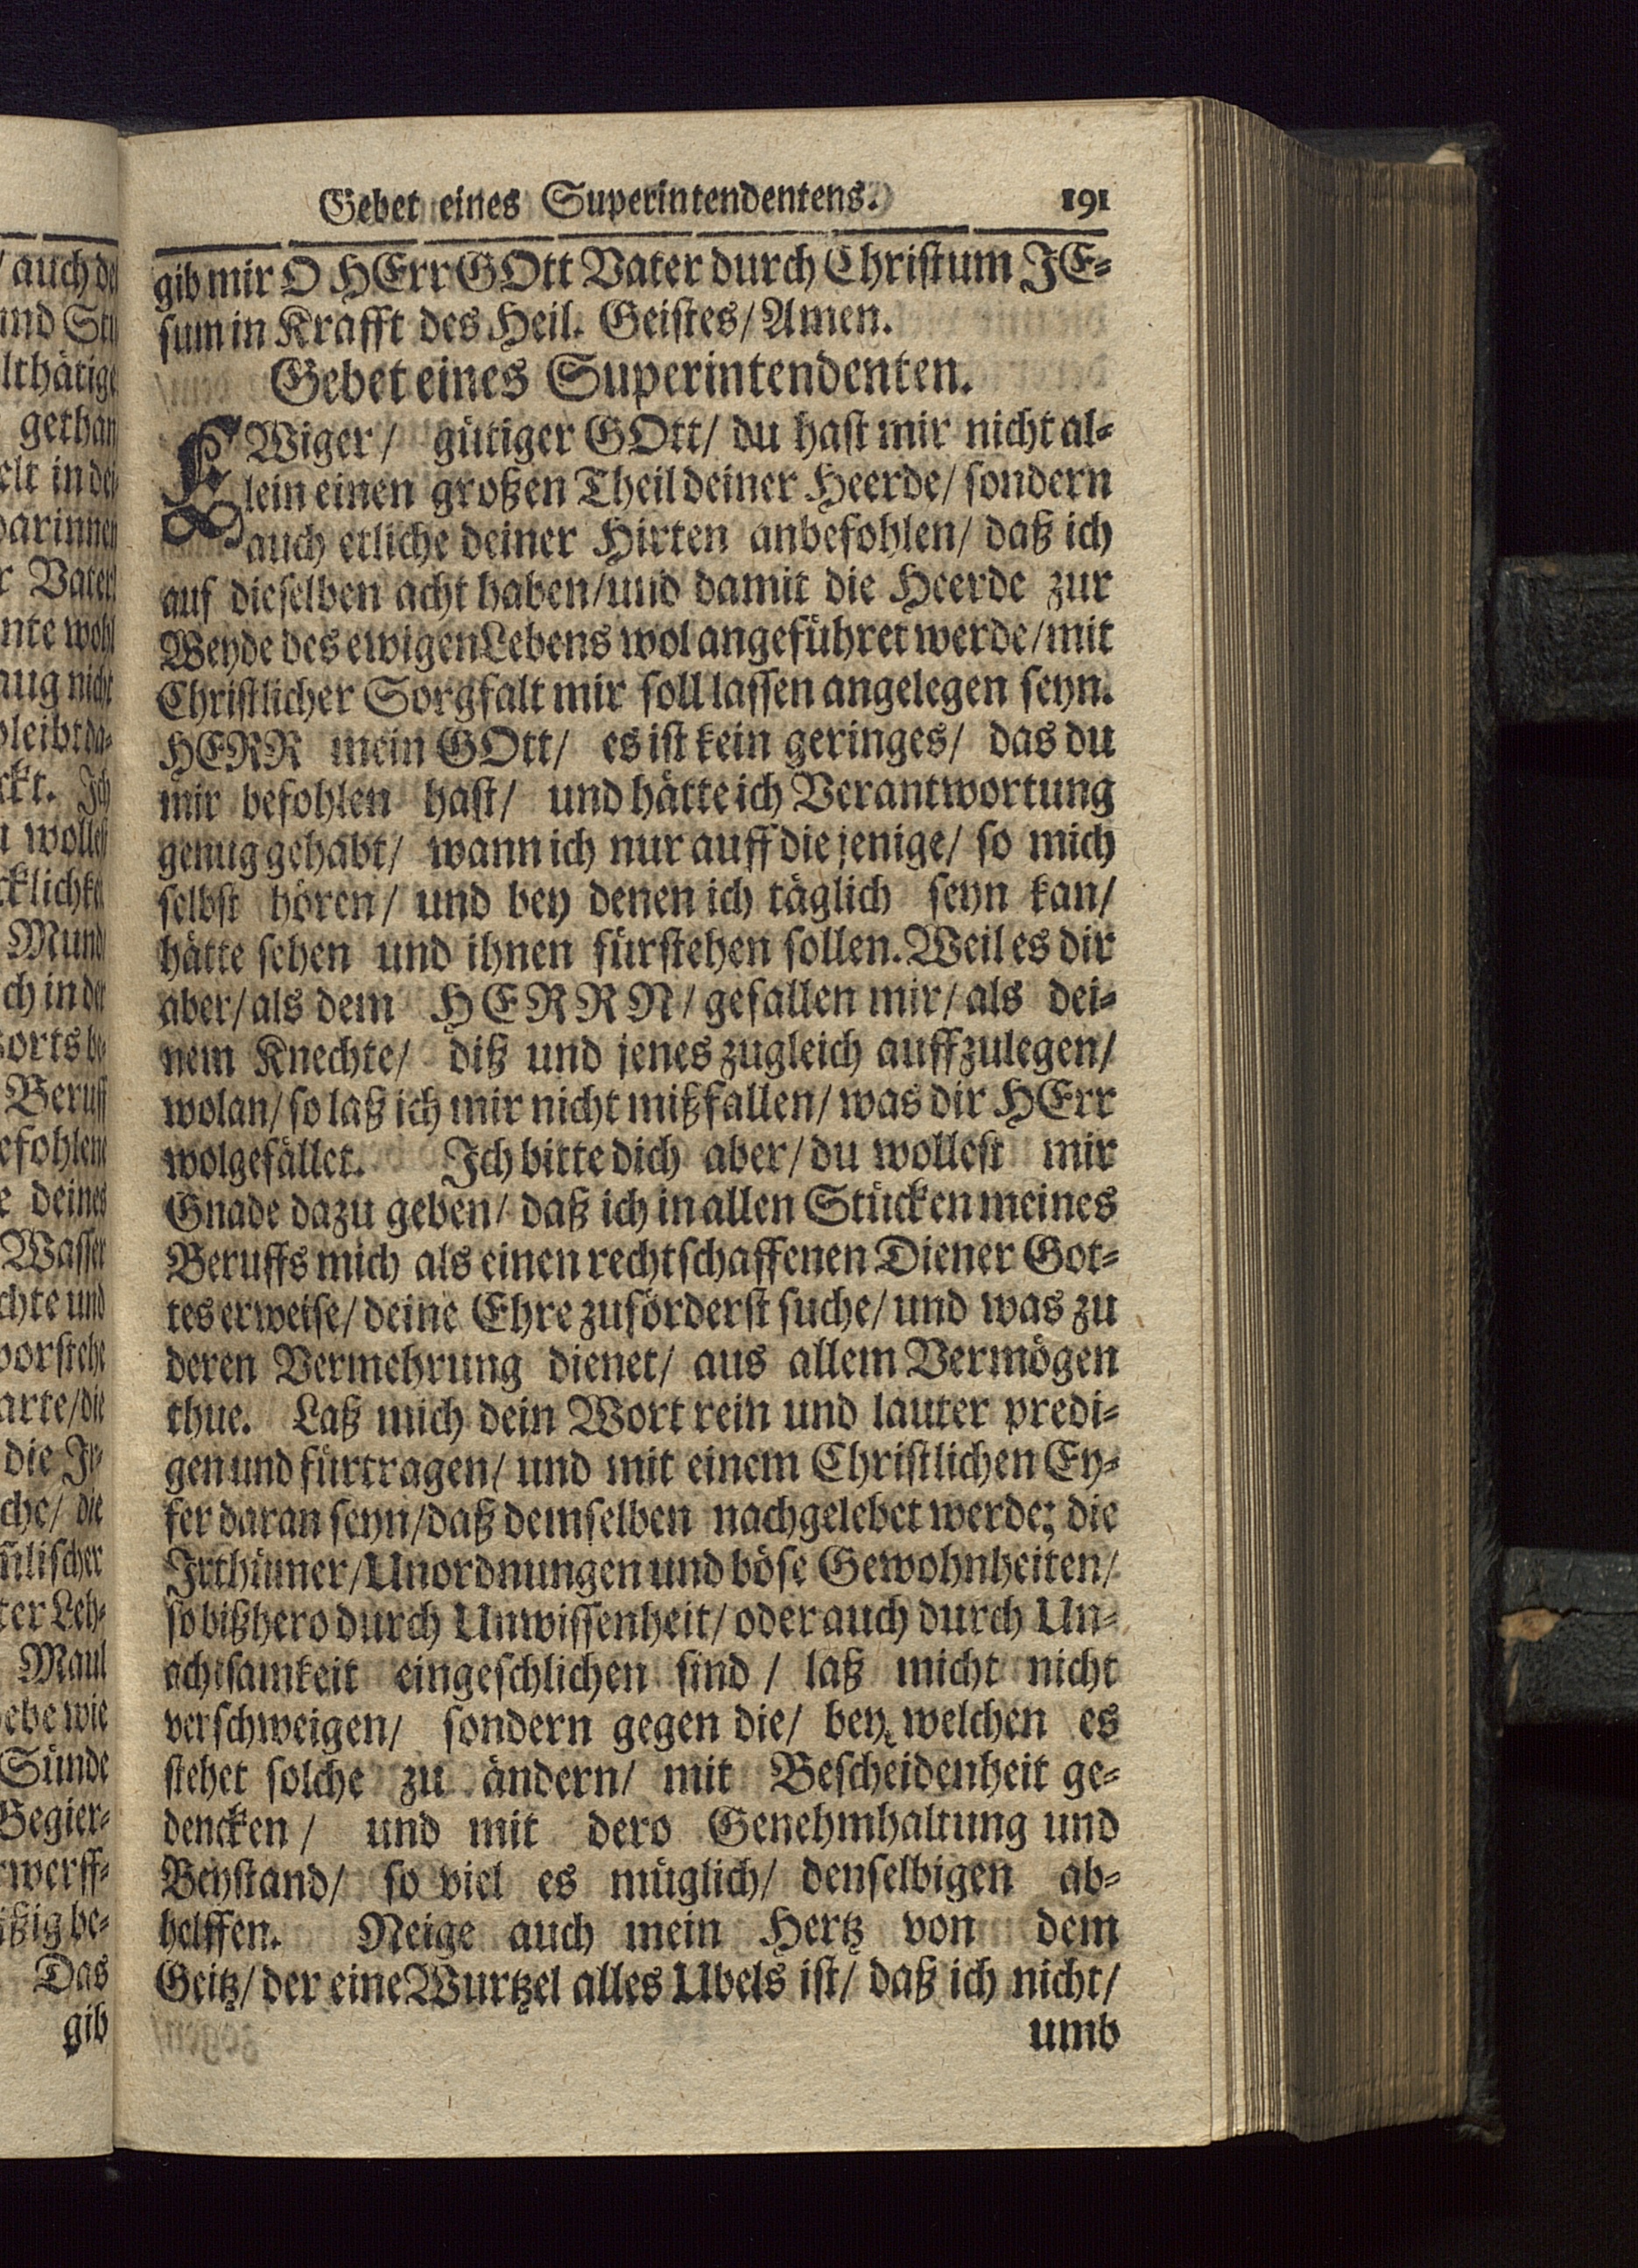 Gebet eines Superintendentens. 191
gib mir O HErr GOtt Vater durch Christum JE-
sum in Krafft des Heil. Geistes/ Amen.
Gebet eines Superintendenten.
EWiger/ gütiger GOtt/ du hast mir nicht al-
lein einen großen Theil deiner Heerde/ sondern
auch etliche deiner Hirten anbefohlen/ daß ich
auf dieselben acht haben/ und damit die Heerde zur
Weyde des ewigen Lebens wol angeführet werde/ mit
Christlicher Sorgfalt mir soll lassen angelegen seyn.
HERR mein GOtt/ es ist kein geringes/ das du
mir befohlen hast/ und hätte ich Verantwortung
genug gehabt/ wann ich nur auff die jenige/ so mich
selbst hören/ und bey denen ich täglich seyn kan/
hätte sehen und ihnen fürstehen sollen. Weil es dir
aber/ als dem HERRN/ gefallen mir/ als dei-
nem Knechte/ diß und jenes zugleich auffzulegen/
wolan/ so laß ich mir nicht mißfallen/ was dir HErr
wolgefället. Ich bitte dich aber/ du wollest mir
Gnade dazu geben/ daß ich in allen Stücken meines
Beruffs mich als einen rechtschaffenen Diener Got-
tes erweise/ deine Ehre zuförderst suche/ und was zu
deren Vermehrung dienet/ aus allem Vermögen
thue. Laß mich dein Wort rein und lauter predi-
gen und fürtragen/ und mit einem Christlichen Ey-
fer daran seyn/ daß demselben nachgelebet werde; die
Irthümer/ Unordnungen und böse Gewohnheiten/
so bißhero durch Unwissenheit/ oder auch durch Un-
achtsamkeit eingeschlichen sind / laß micht nicht
verschweigen/ sondern gegen die/ bey welchen es
stehet solche zu ändern/ mit Bescheidenheit ge-
dencken / und mit dero Genehmhaltung und
Beystand/ so viel es müglich/ denselbigen ab-
helffen. Neige auch mein Hertz von dem
Geitz/ der eine Wurtzel alles Ubels ist/ daß ich nicht/
umb